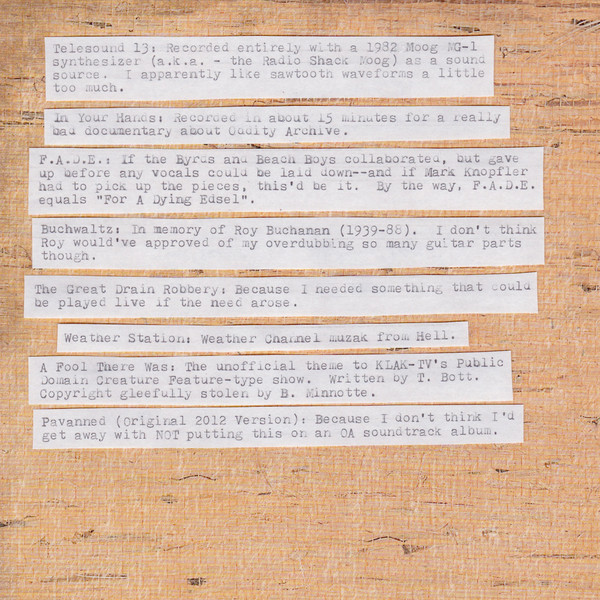 Telesound 13: Recorded entirely with a 1982 Moog MG-1
synthesizer (a.k.a. - the Radio Shack Moog) as a sound
source.  I apparently like sawtooth waveforms a little
too much.
In Your Hands: Recorded in about 15 minutes for a really
bad documentary about Oddity Archive.
F.A.D.E.: If the Byrds and Beach Boys collaborated, but gave
up before any vocals could be laid down--and if Mark Knopfler
had to pick up the pieces, this'd be it.  By the way, F.A.D.E.
equals "For A Dying Edsel".
Buchwaltz: In memory of Roy Buchanan (1939-88).  I don't think
Roy would've approved of my overdubbing so many guitar parts
though.
The Great Drain Robbery: Because I needed something that could
be played live if the need arose.
Weather Station: Weather Channel muzak from Hell.
A Fool There Was: The unofficial theme to KLAK-TV's Public
Domain Creature Feature-type show.  Written by T. Bott.
Copyright gleefully stolen by B. Minnotte.
Pavanned (Original 2012 Version): Because I don't think I'd
get away with NOT putting this on an OA soundtrack album.